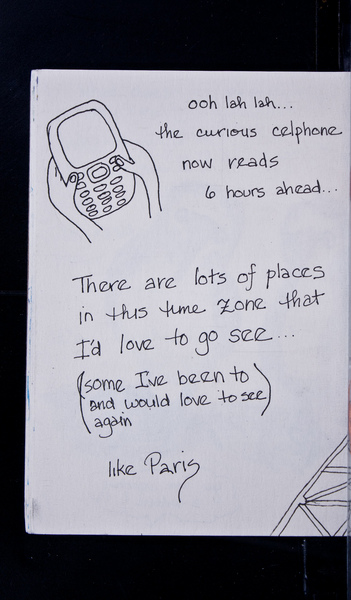 ooh lah lah...
the curious celphone
now reads
6 hours ahead...
There are lots of places
in this time zone that
I'd love to go see...
(some I've been to
and would love to see
again)
like Paris